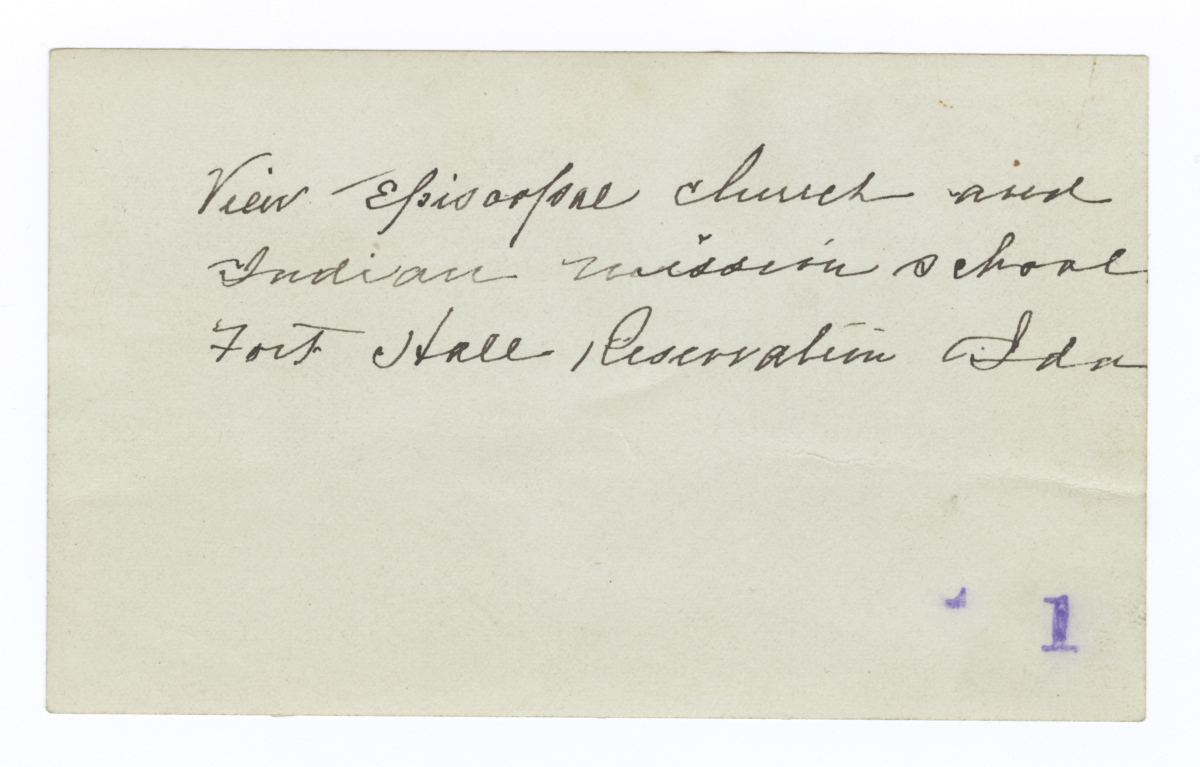 View Episcopal church and
Indian mission school
Fort Hall Reservation Ida
1